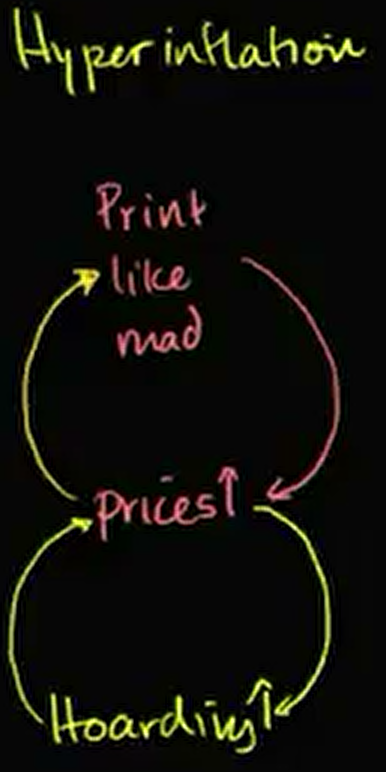 Hyperinflation
Print
like
mad
Prices↑
Hoarding↑